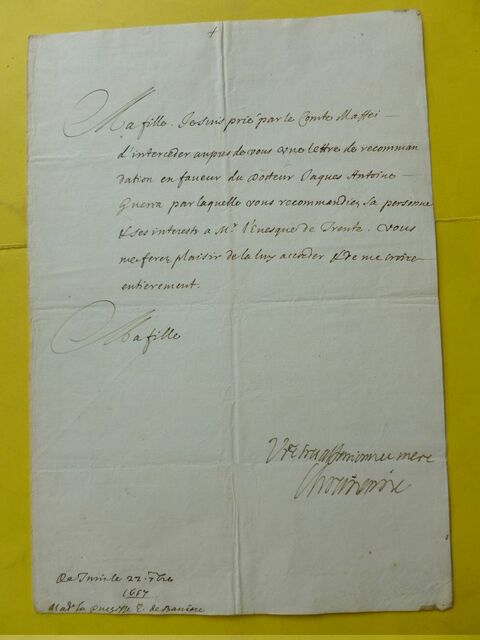 Ma fille. Je suis prié par le Comte Maffei
d'interceder aupres de vous une lettre de recomman
dation en faveur du Docteur Jaques Antoine
Guerra par laquelle vous recommandiez sa personne
& ses interests a Mr. l'Evesque de Trente. Vous
me ferez plaisir de la luy accorder & de me croire
entierement.
Ma fille
Vre tres affectionnee mere
Chrestienne
De Turin le 22 7bre
1657
Made la Princesse E. de Baviere